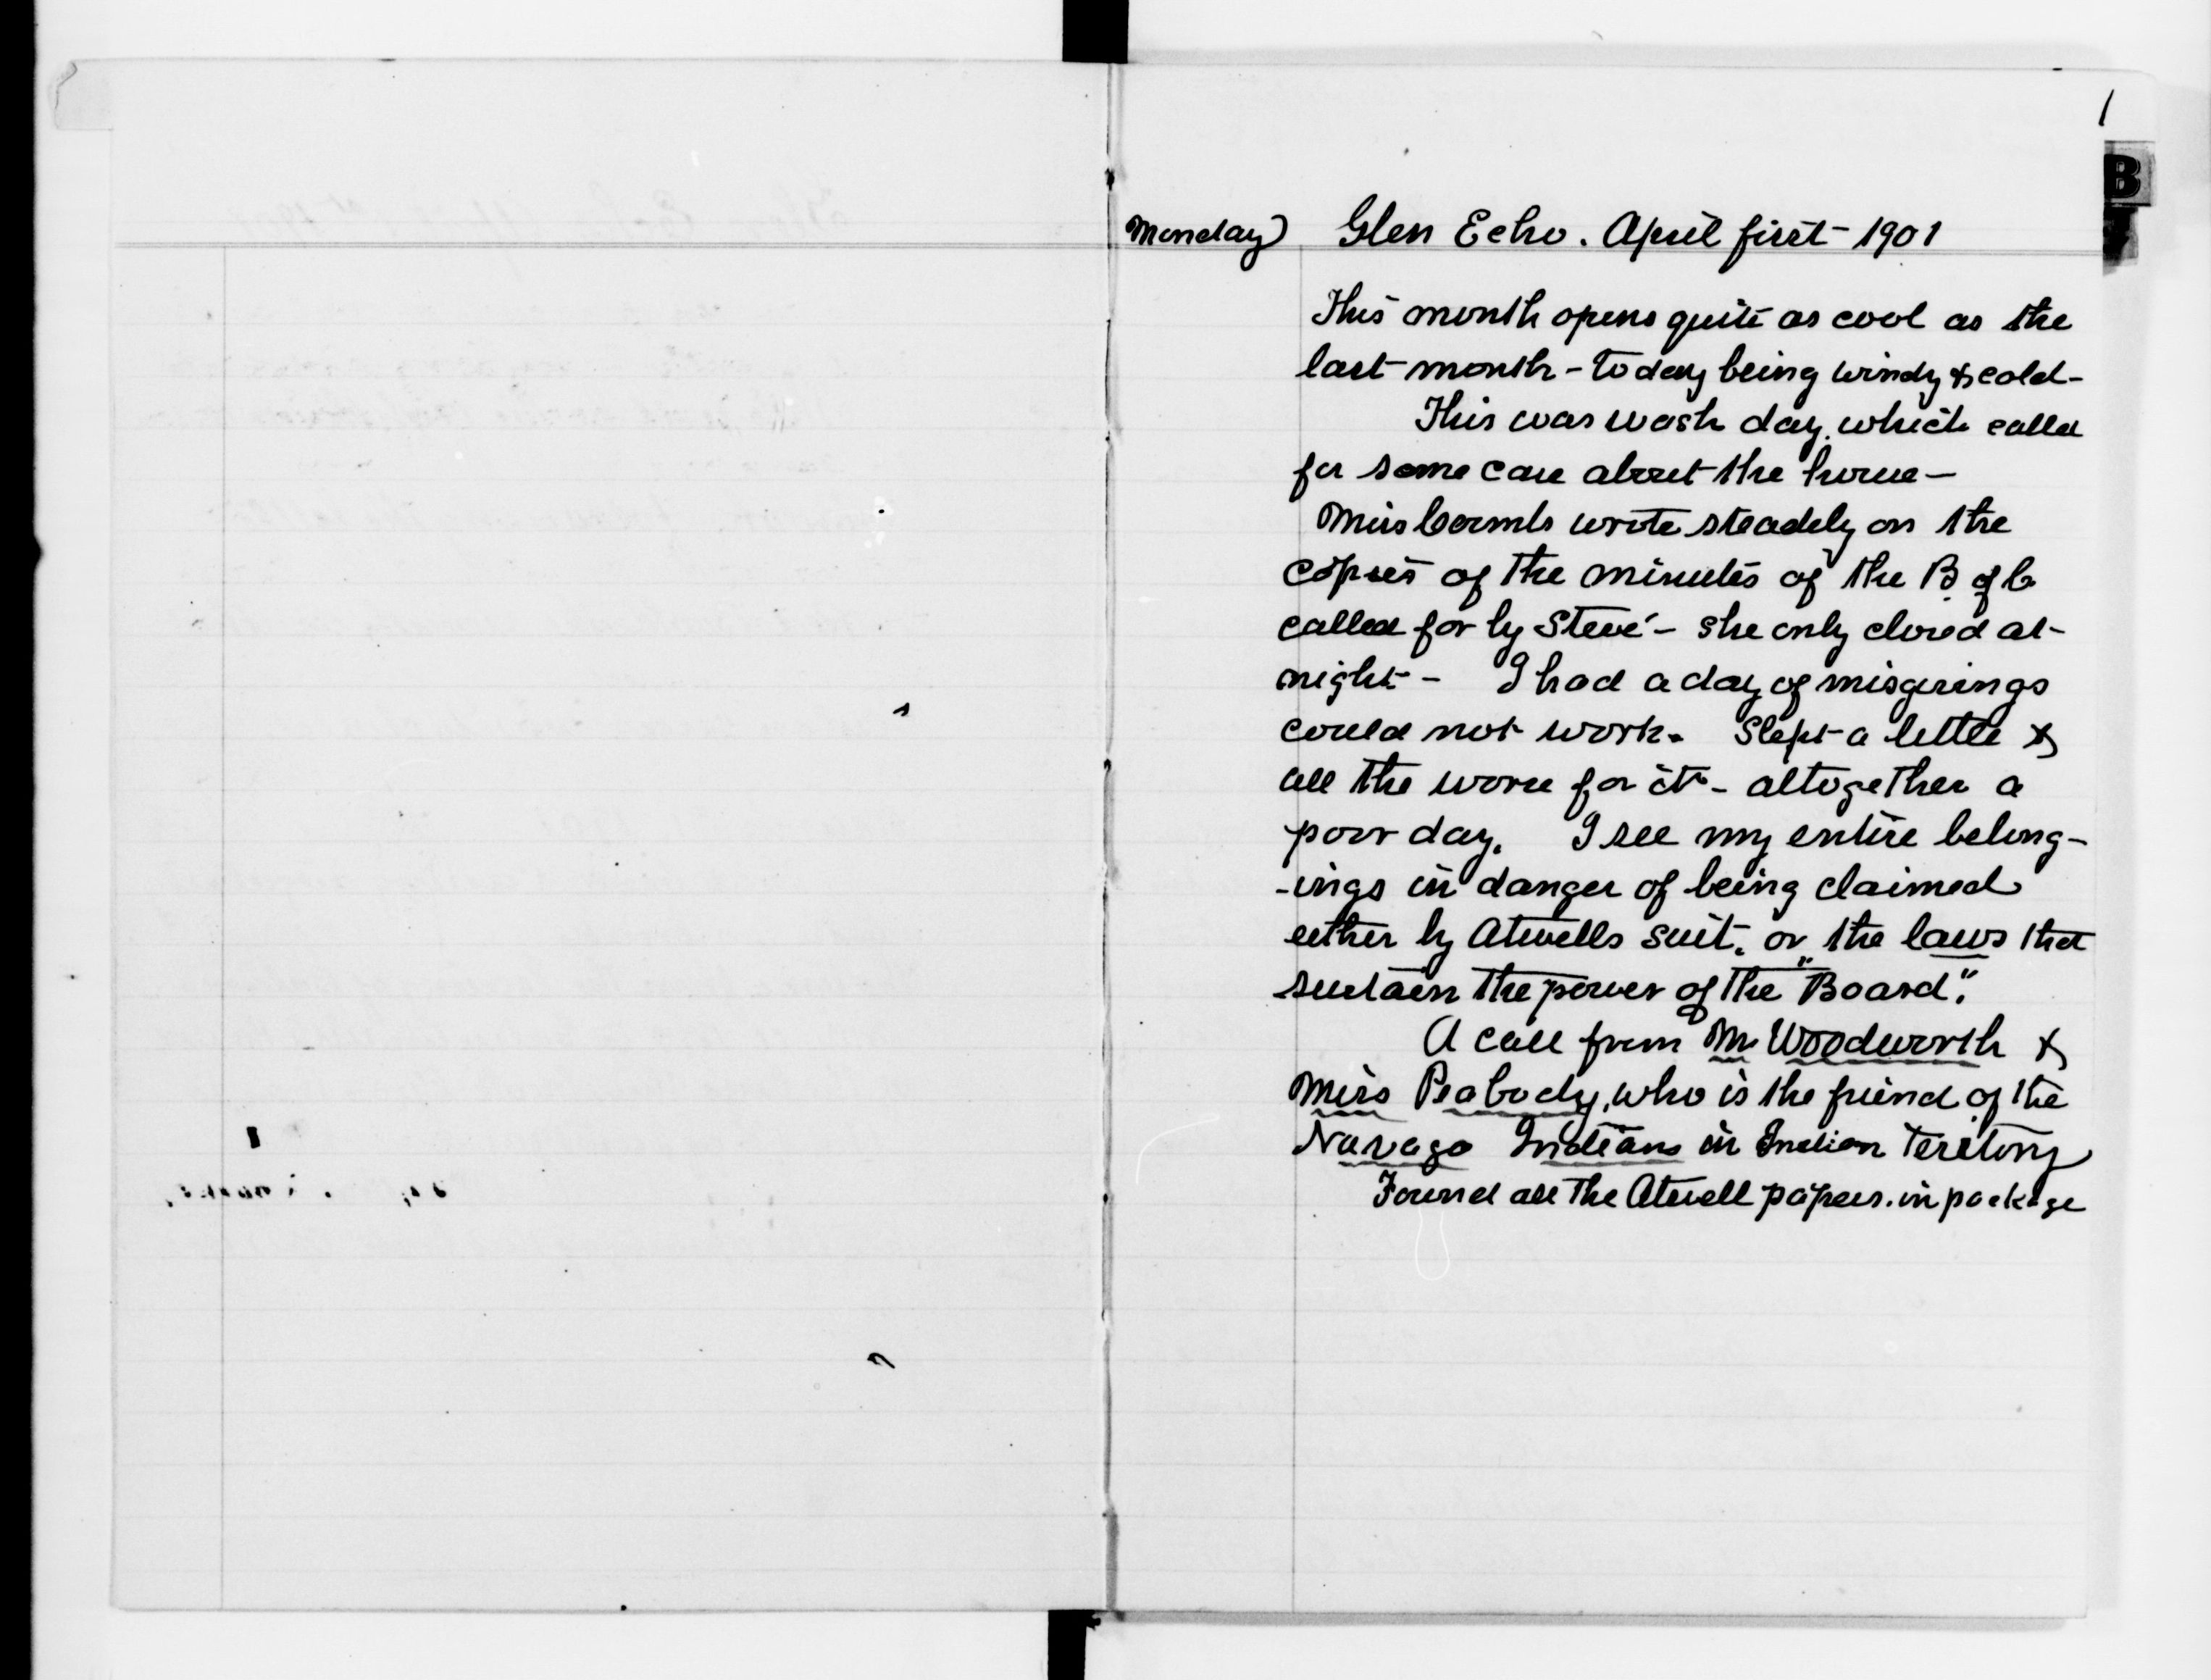 1
B
Monday Glen Echo. April first - 1901
This month opens quite as cool as the
last month - today being windy & cold -
This was wash day. which called
for some care about the house -
Miss Coombs wrote steadely on the
copies of the minutes of the B of C
called for by Steve - she only closed at
night - I had a day of misgivings
could not work. Slept a little &
all the worse for it - altogether a
poor day. I see my entire belong-
-ings in danger of being claimed
either by Atwells suit. or the laws that
sustain the power of the "Board".
A call from Mr Woodworth &
Miss Peabody, who is the friend of the
Navago Indians in Indian Teritory
Found all the Atwell papers. in package